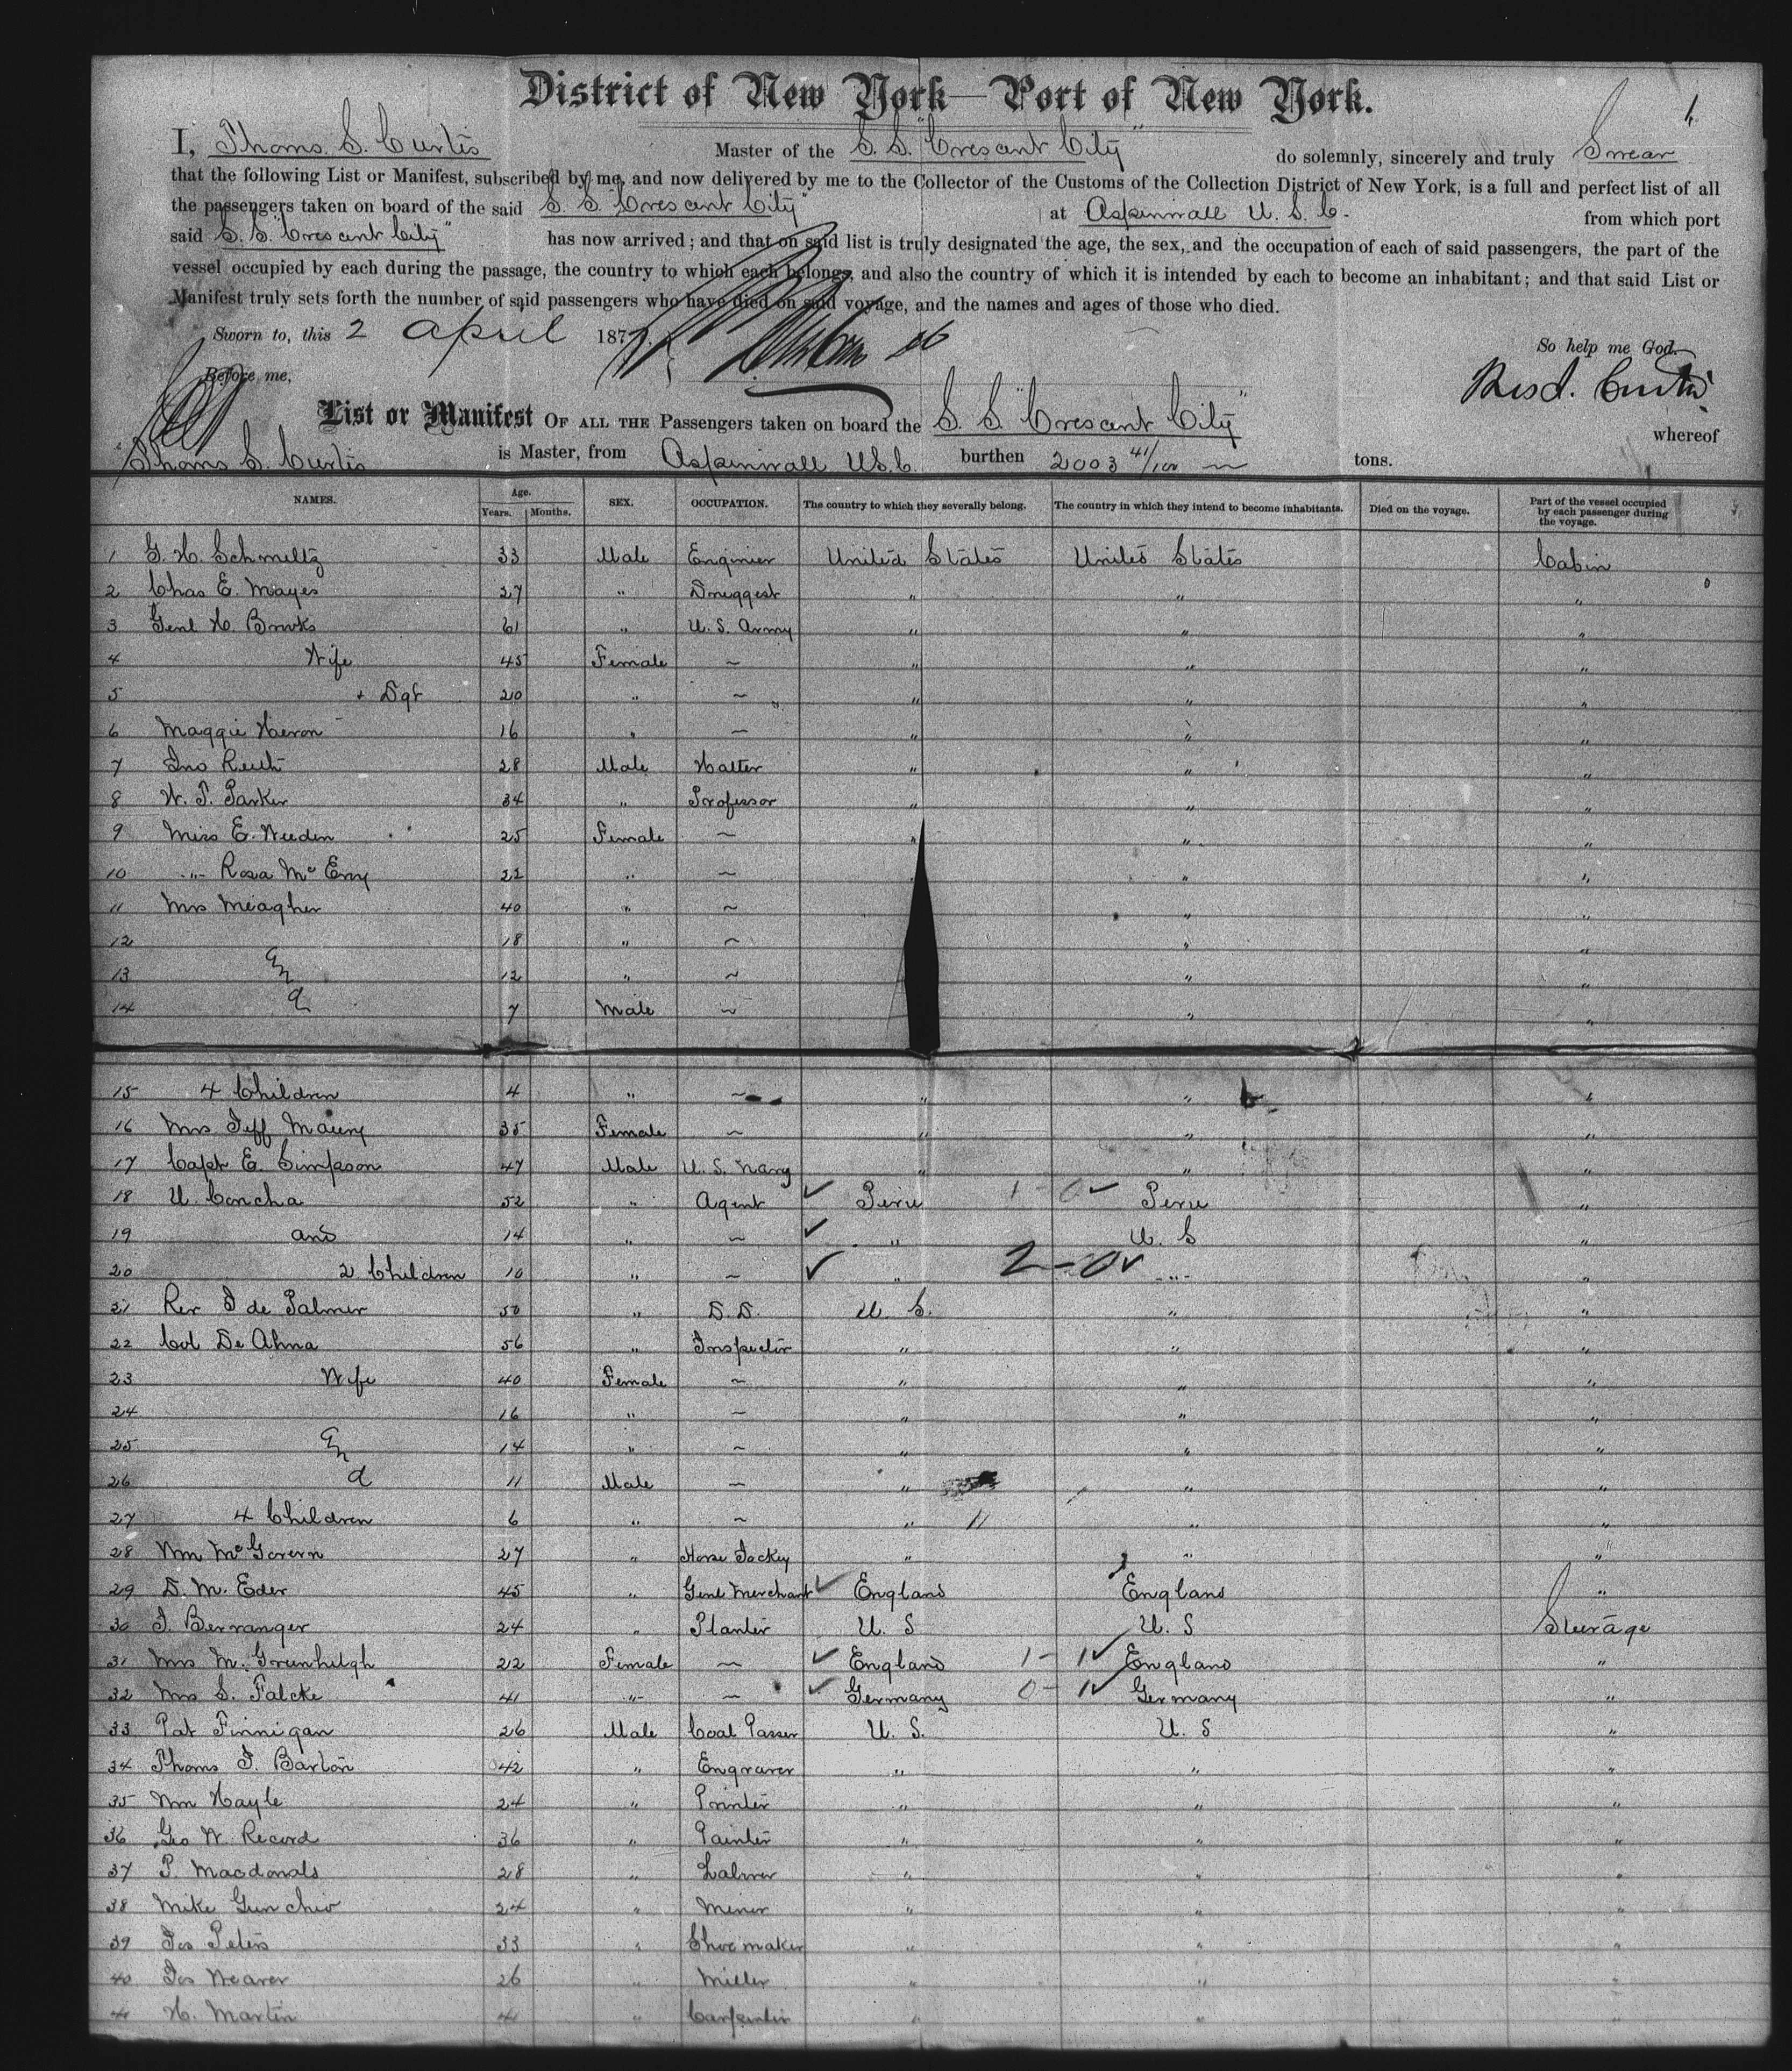 District of New York—Port of New York.
1
I, Thoms. S. Curtis Master of the S. S. "Crescent City" do solemnly, sincerely and truly Swear
that the following List or Manifest, subscribed by me, and now delivered by me to the Collector of the Customs of the Collection District of New York, is a full and perfect list of all
the passengers taken on board of the said S. S. "Crescent City" at Aspinwall U. S. C. from which port
said S. S. "Crescent City" has now arrived; and that on said list is truly designated the age, the sex, and the occupation of each of said passengers, the part of the
vessel occupied by each during the passage, the country to which each belongs, and also the country of which it is intended by each to become an inhabitant; and that said List or
Manifest truly sets forth the number of said passengers who have died on said voyage, and the names and ages of those who died.
Sworn to, this 2 April 187
So help me God.
Before me,
List or Manifest OF ALL THE Passengers taken on board the S. S. "Crescent City" whereof
Thoms S. Curtis is Master, from Aspinwall U.S.C. burthen 2003 41/100 tons.
NAMES. Age. Years. Months. SEX. OCCUPATION. The country to which they severally belong. The country in which they intend to become inhabitants. Died on the voyage. Part of the vessel occupied by each passenger during the voyage.
1 G. H. Schmeltz 33 Male Enginier United States United States Cabin
2 Chas E. Mayes 27 " Druggest " " "
3 Genl H. Brooks 61 " U. S. Army " " "
4 Wife 45 Female ~ " " "
5 + Dgt 20 " ~ " " "
6 Maggie Heron 16 " ~ " " "
7 Jno Reuti 28 Male Hatter " " "
8 W. T. Parker 34 " Professor " " "
9 Miss E. Weeden 25 Female ~ " " "
10 " Rosa Mc Eny 22 " ~ " "
11 Mrs Meagher 40 " ~ " "
12 18 " ~ " "
13 12 " ~ " "
14 And 7 Male ~ " "
15 4 Children 4 " ~ " " "
16 Mrs Jeff Maury 35 Female ~ " " "
17 Capt E. Simpson 47 Male U. S. Navy " " "
18 U. Concha 52 " Agent ✓ Peru 1 - 0 ✓ Peru "
19 and 14 " ~ ✓ " U. S "
20 2 Children 10 " ~ ✓ " 2 - 0 ✓ " "
21 Rev J de Palmer 50 " D. D. U. S. " "
22 Col De Ahna 56 " Inspector " " "
23 Wife 40 Female ~ " " "
24 16 " ~ " " "
25 14 " ~ " " "
26 And 11 Male ~ " " "
27 4 Children 6 " ~ " " "
28 Wm Mc Govern 27 " Horse Jockey " " "
29 D. M. Eder 45 " Genl Merchant ✓ England England "
30 J. Berranger 24 " Planter U. S U. S Steerage
31 Mrs M. Greenhelgh 22 Female ~ ✓ England 1 - 1 ✓ England "
32 Mrs S. Falcke 41 " ~ ✓ Germany 0 - 1 ✓ Germany "
33 Pat Finnigan 26 Male Coal Passer U. S. U. S "
34 Thoms J. Barton 42 " Engraver " " "
35 Wm Hayle 24 " Printer " " "
36 Geo W. Record 36 " Painter " " "
37 P. Macdonald 28 " Labrer " " "
38 Mike Gun chio 24 " Miner " " "
39 Jos Peters 33 " Shoe maker " " "
40 Jos Wearer 26 " Miller " " "
41 H. Martin 41 " Carpenter " " "